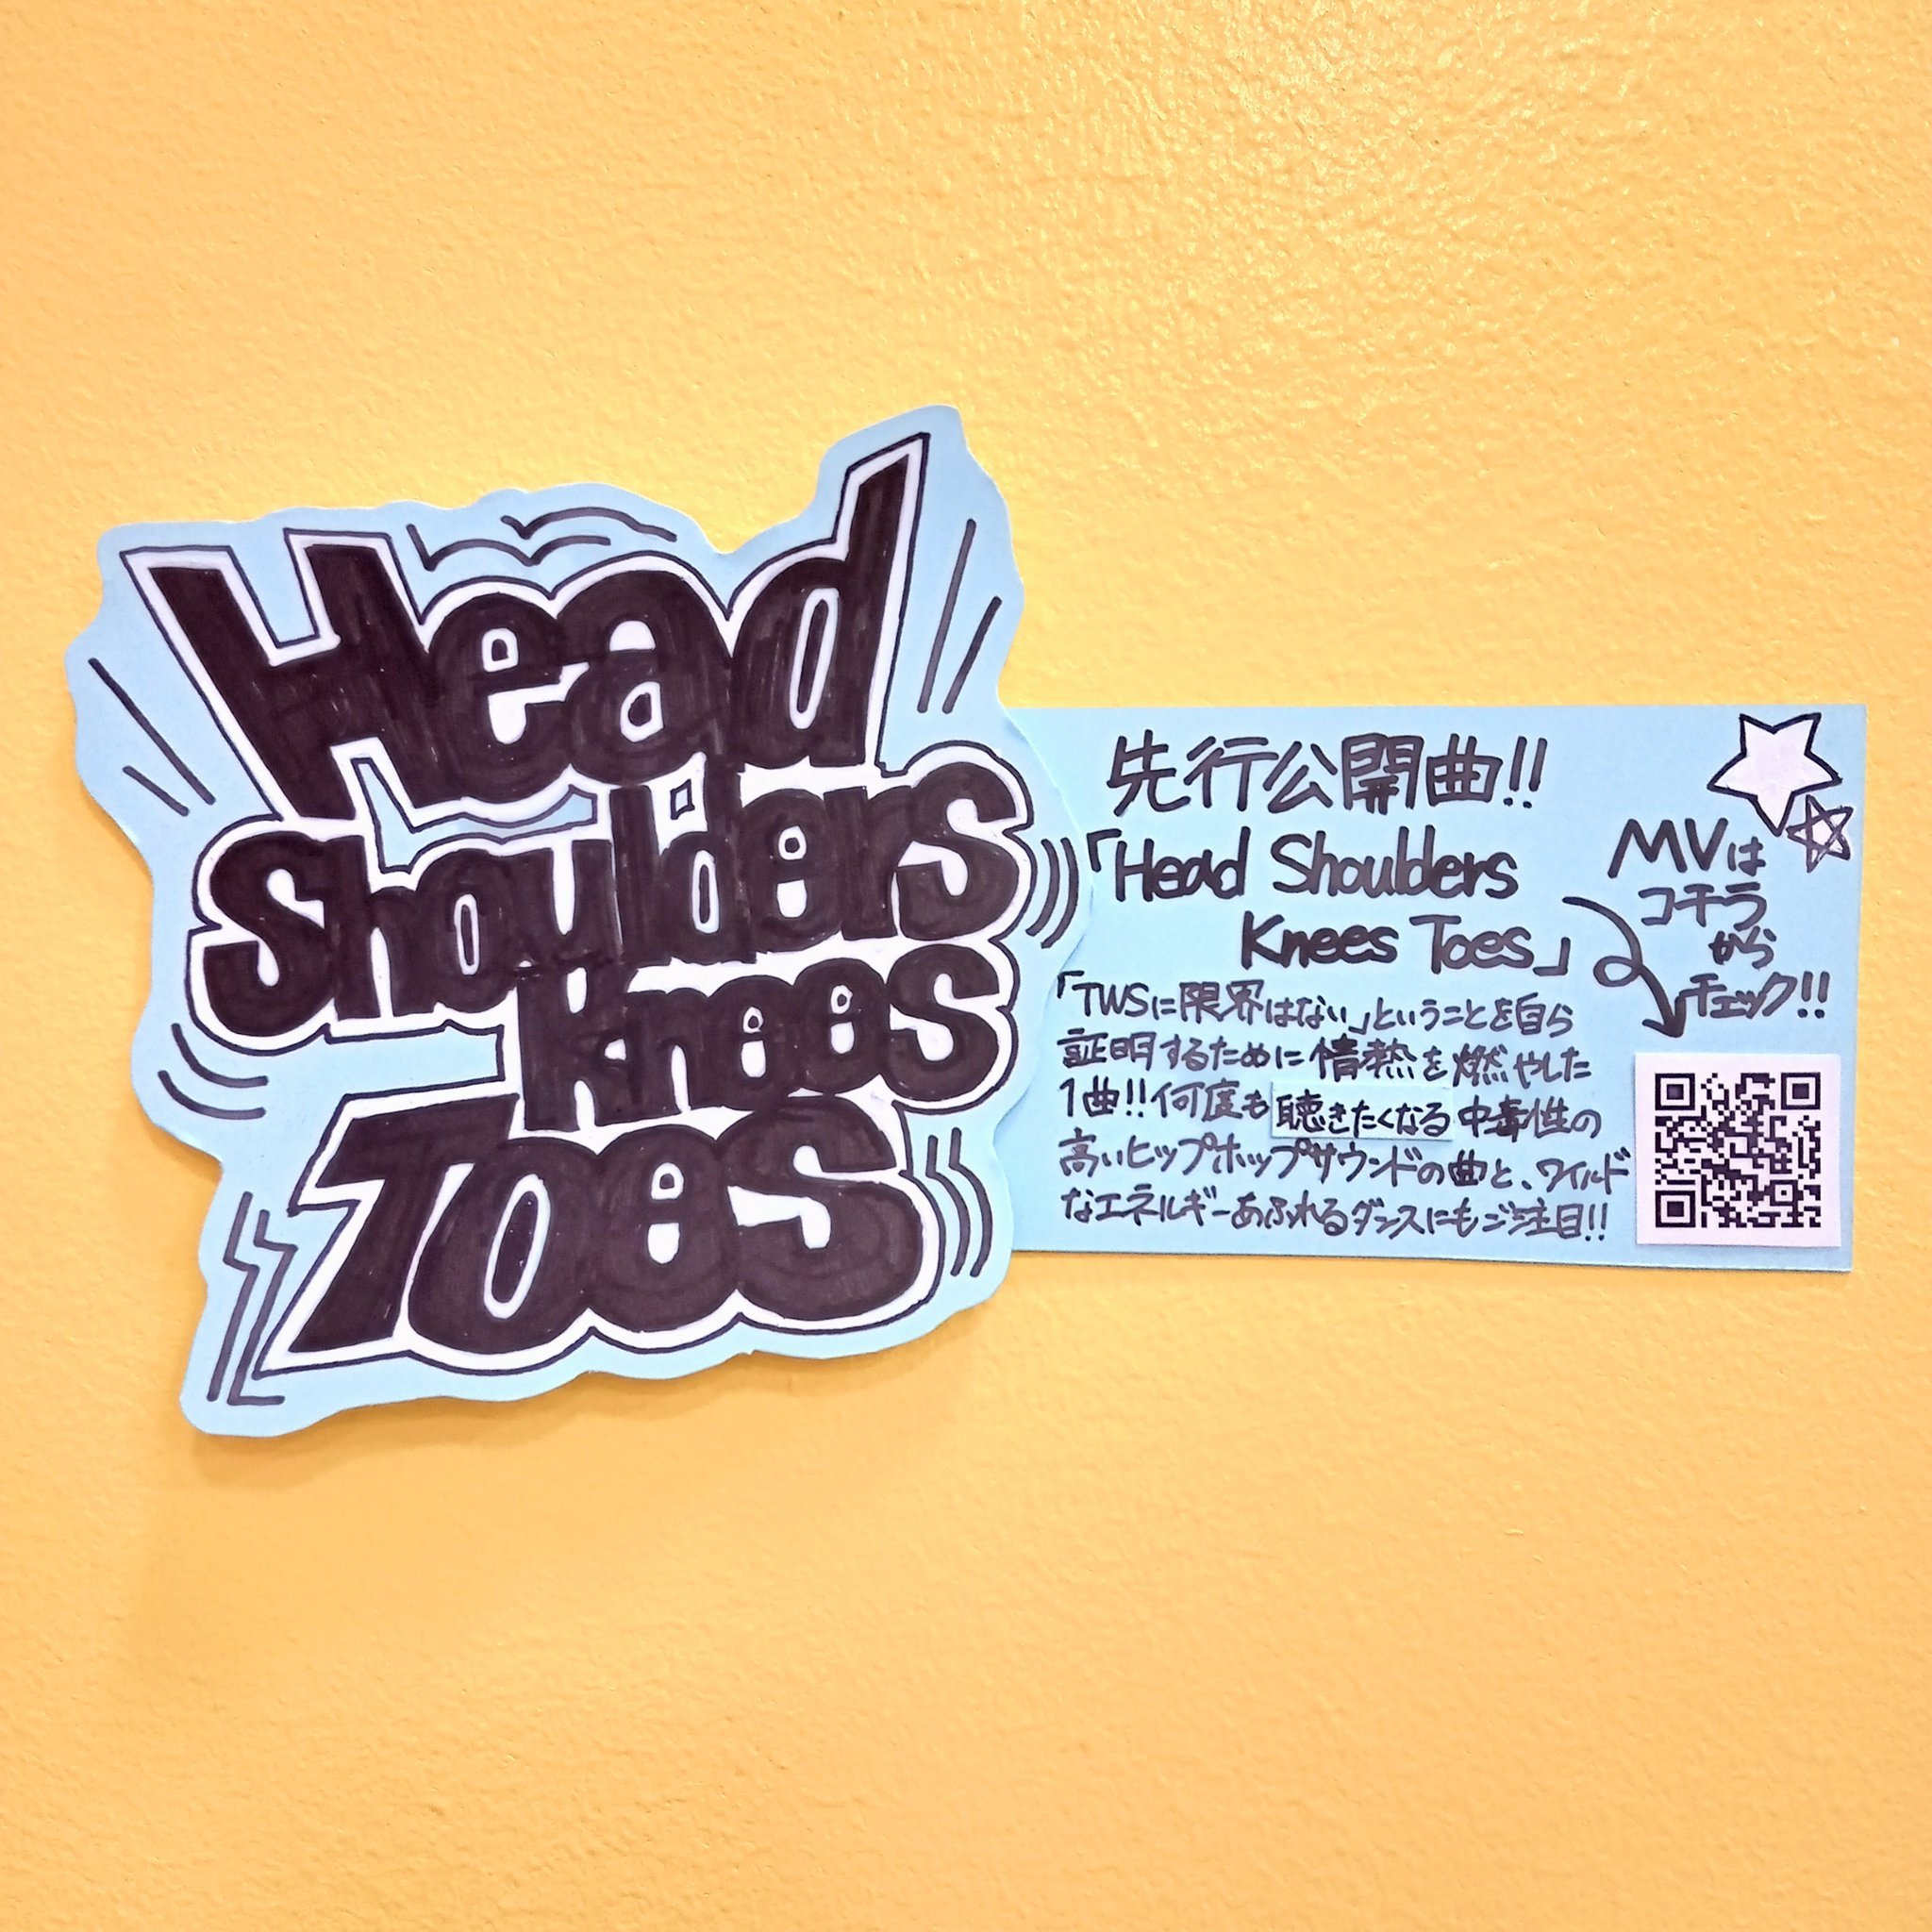 Head
Shoulders
Knees
Toes
先行公開曲!!
「Head Shoulders
Knees Toes」
「TWSに限界はない」ということを自ら
証明するために情熱を燃やした
1曲!!何度も聴きたくなる中毒性の
高いヒップホップサウンドの曲と、ワイルド
なエネルギーあふれるダンスにもご注目!!
MVは
コチラ
から
チェック!!